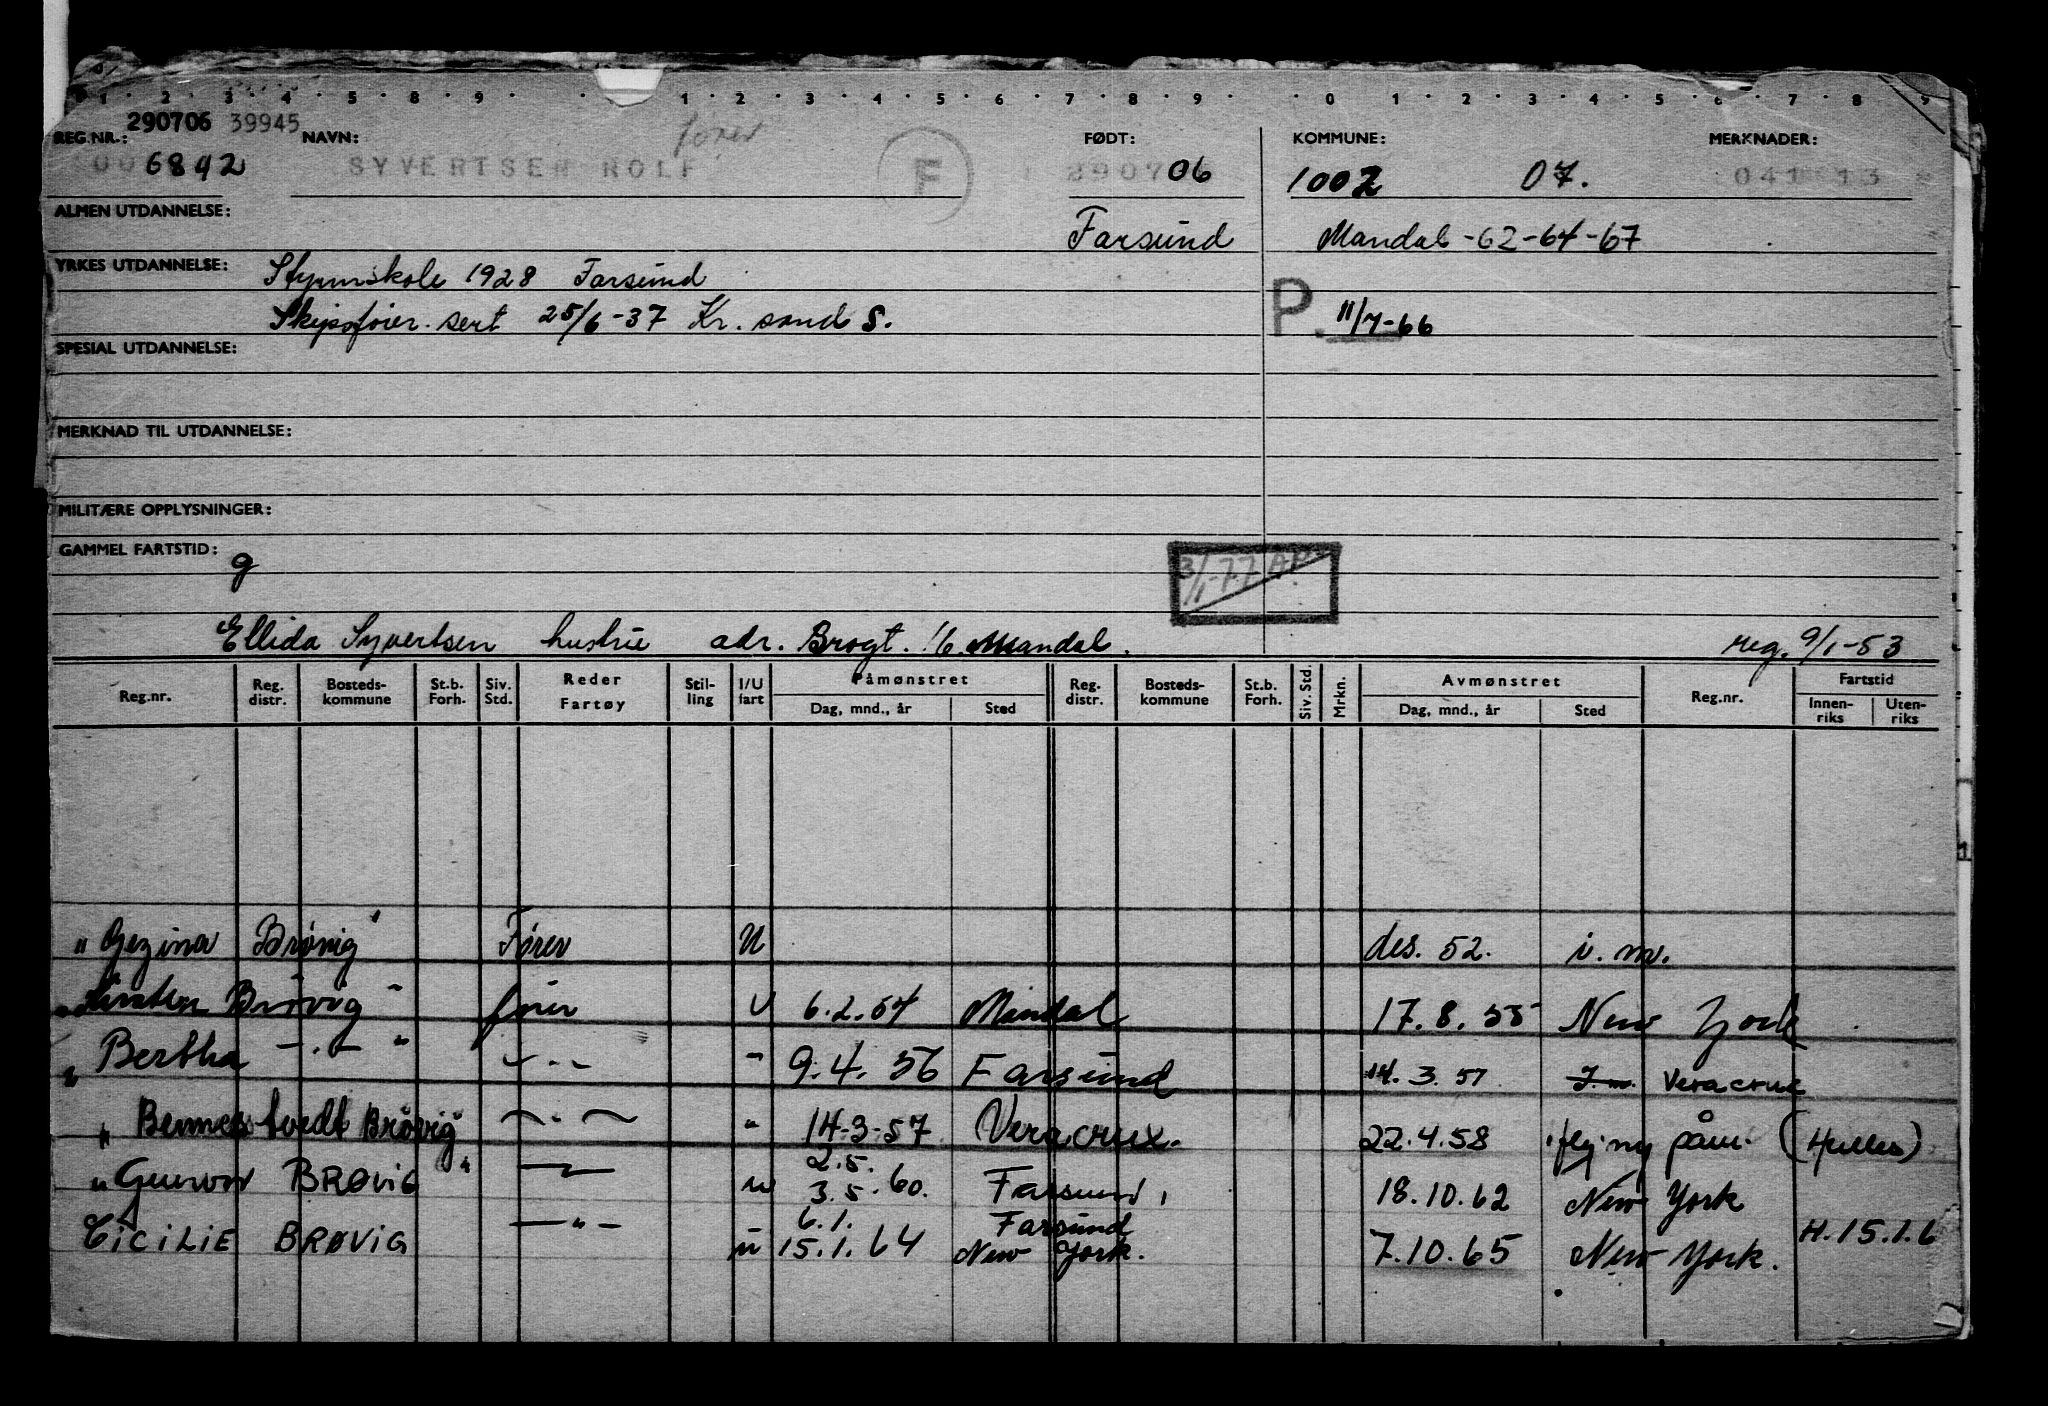 1 · 2 · 3 · 4 · 5 · 8 · 9 · · 1 · 2 · 3 · 4 · 5 · 6 · 7 · 8 · 9 · · 0 · 1 · 2 · 3 · 4 · 5 · 6 · 7 · 8 · 9
290706 39945
REG.NR.: NAVN: fører FØDT: KOMMUNE: MERKNADER:
6892 SYVERTSEN ROLF F 2907 06 1002 07. 041 13
ALMEN UTDANNELSE: Farsund Mandal -62-64-67
YRKES UTDANNELSE: Styrmskole 1928 Farsund
Skipsfører. sert 25/6-37 Kr. sand S. P. 11/7-66
SPESIAL UTDANNELSE:
MERKNAD TIL UTDANNELSE:
MILITÆRE OPPLYSNINGER:
GAMMEL FARTSTID: g 3/1-77 AP
Ellida Syvertsen hustru adr. Brogt. 16. Mandal. reg. 9/1-53
Reg.nr. Reg. distr. Bosteds-kommune St.b. Forh. Siv. Std. Reder Fartøy Stil-ling I/U fart Påmønstret Dag, mnd., år Sted Reg. distr. Bosteds-kommune St.b. Forh. Siv. Std. Mrkn. Avmønstret Dag, mnd., år Sted Reg.nr. Fartstid Innen-riks Uten-riks
" Gezina Brøvig " Fører U des. 52. i. m.
" Kirsten Brøvig " fører U 6.2.54 Mandal 17.8.55 New York
" Bertha -"- " -"- " 9.4.56 Farsund 14.3.57 I.m. Veracruz
" Bennestvedt Brøvig " -"- " 14-3-57 Veracrux. 22.4.58 fly. ny påm. (Hulles)
" Gunvor BRØVIG " -"- u 2.5. 3.5.60. Farsund, 18.10.62 New York
CICILIE BRØVIG -"- u 6.1. Farsund 15.1.64 New York. 7.10.65 New York. H.15.1.6